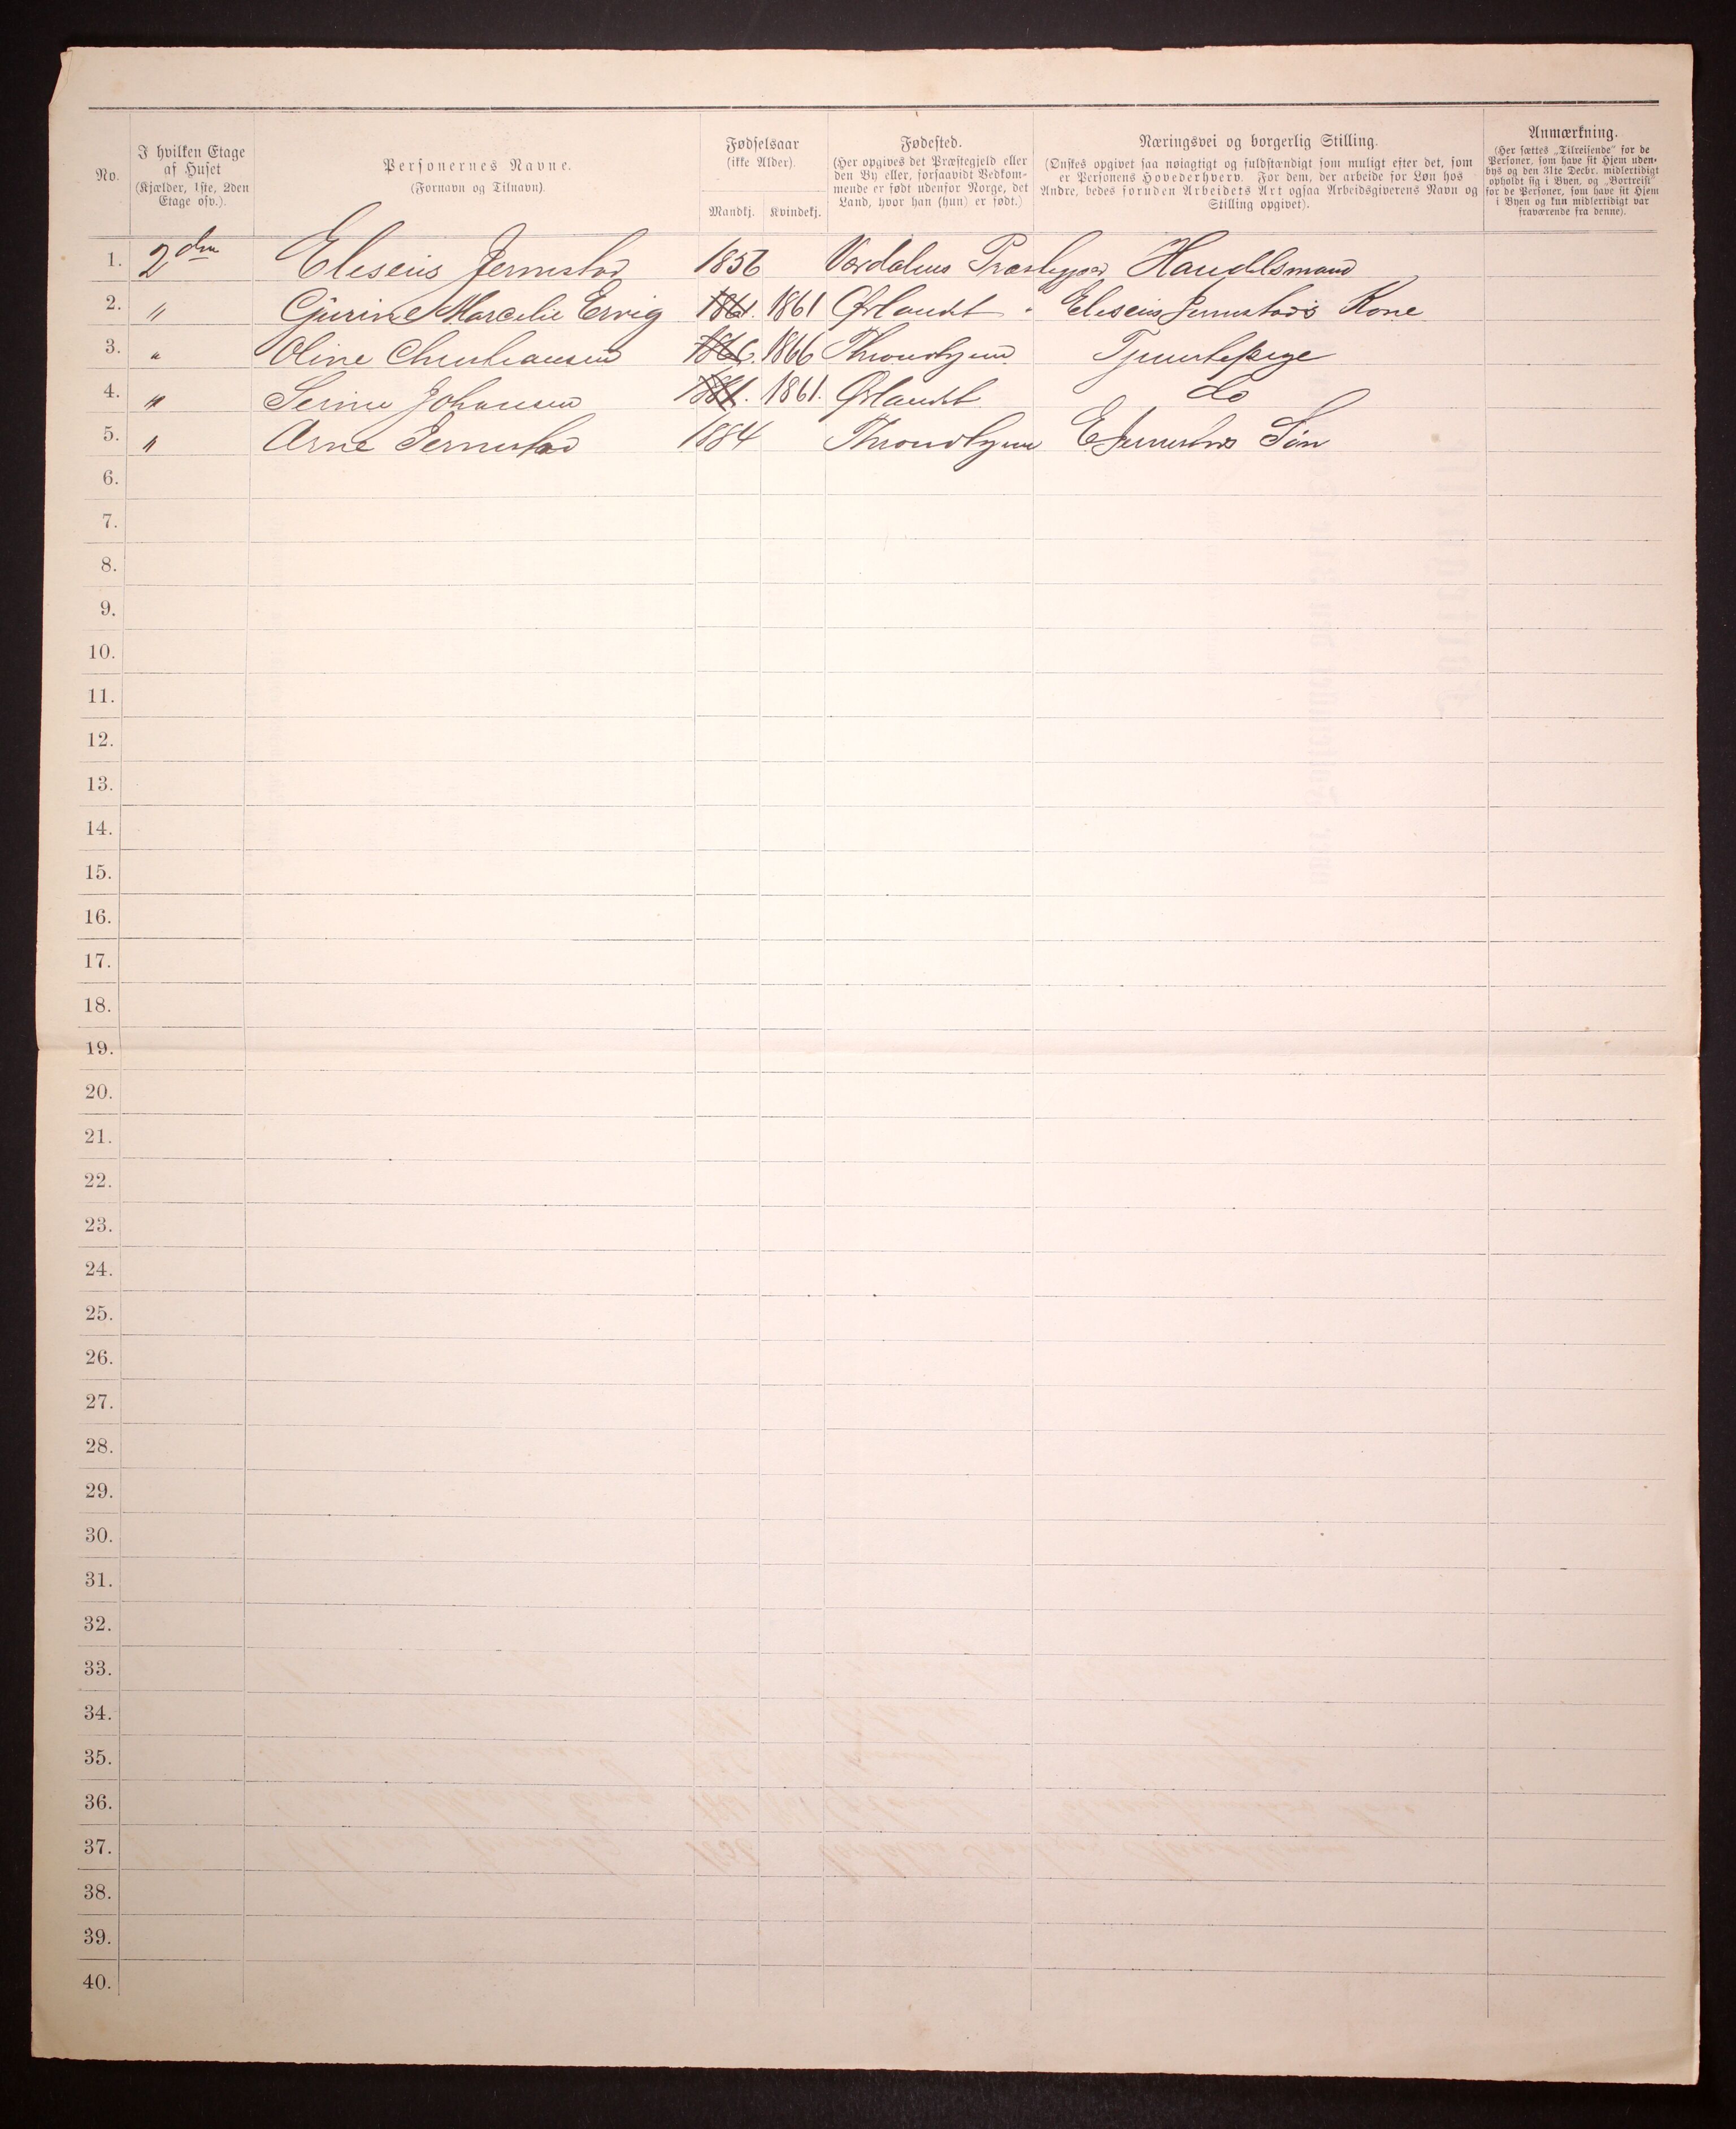 No.
I hvilken Etage
af Huset
(Kjælder, 1ste, 2den
Etage osv.).
Personernes Navne.
(Fornavn og Tilnavn).
Fødselsaar
(ikke Alder).
Mandkj. Kvindekj.
Fødested.
(Her opgives det Præstegjeld eller
den By eller, forsaavidt Vedkom-
mende er født udenfor Norge, det
Land, hvor han (hun) er født.)
Næringsvei og borgerlig Stilling.
(Ønskes opgivet saa nøiagtigt og fuldstændigt som muligt efter det, som
er Personens Hovederhverv. For dem, der arbeide for Løn hos
Andre, bedes foruden Arbeidets Art ogsaa Arbeidsgiverens Navn og
Stilling opgivet).
Anmærkning.
(Her sættes „Tilreisende" for de
Personer, som have sit Hjem uden-
bys og den 31te Decbr. midlertidigt
opholdt sig i Byen, og „Bortreist"
for de Personer, som have sit Hjem
i Byen og kun midlertidigt var
fraværende fra denne).
1. 2den Eliseus Jermstad 1856 Værdalens Handelsmand
2. " Gjurine Marcelie Ervig 1861. 1861 Ørlandet Eliseus Jermstads Kone
3. " Oline Christiansen 1866. 1866 Throndhjem Tjenestepige
4. " Serine Johansen 1861. 1861. Ørlandet do
5. " Arne Jermstad 1884 Throndhjem E Jermstads Søn
6.
7.
8.
9.
10.
11.
12.
13.
14.
15.
16.
17.
18.
19.
20.
21.
22.
23.
24.
25.
26.
27.
28.
29.
30.
31.
32.
33.
34.
35.
36.
37.
38.
39.
40.